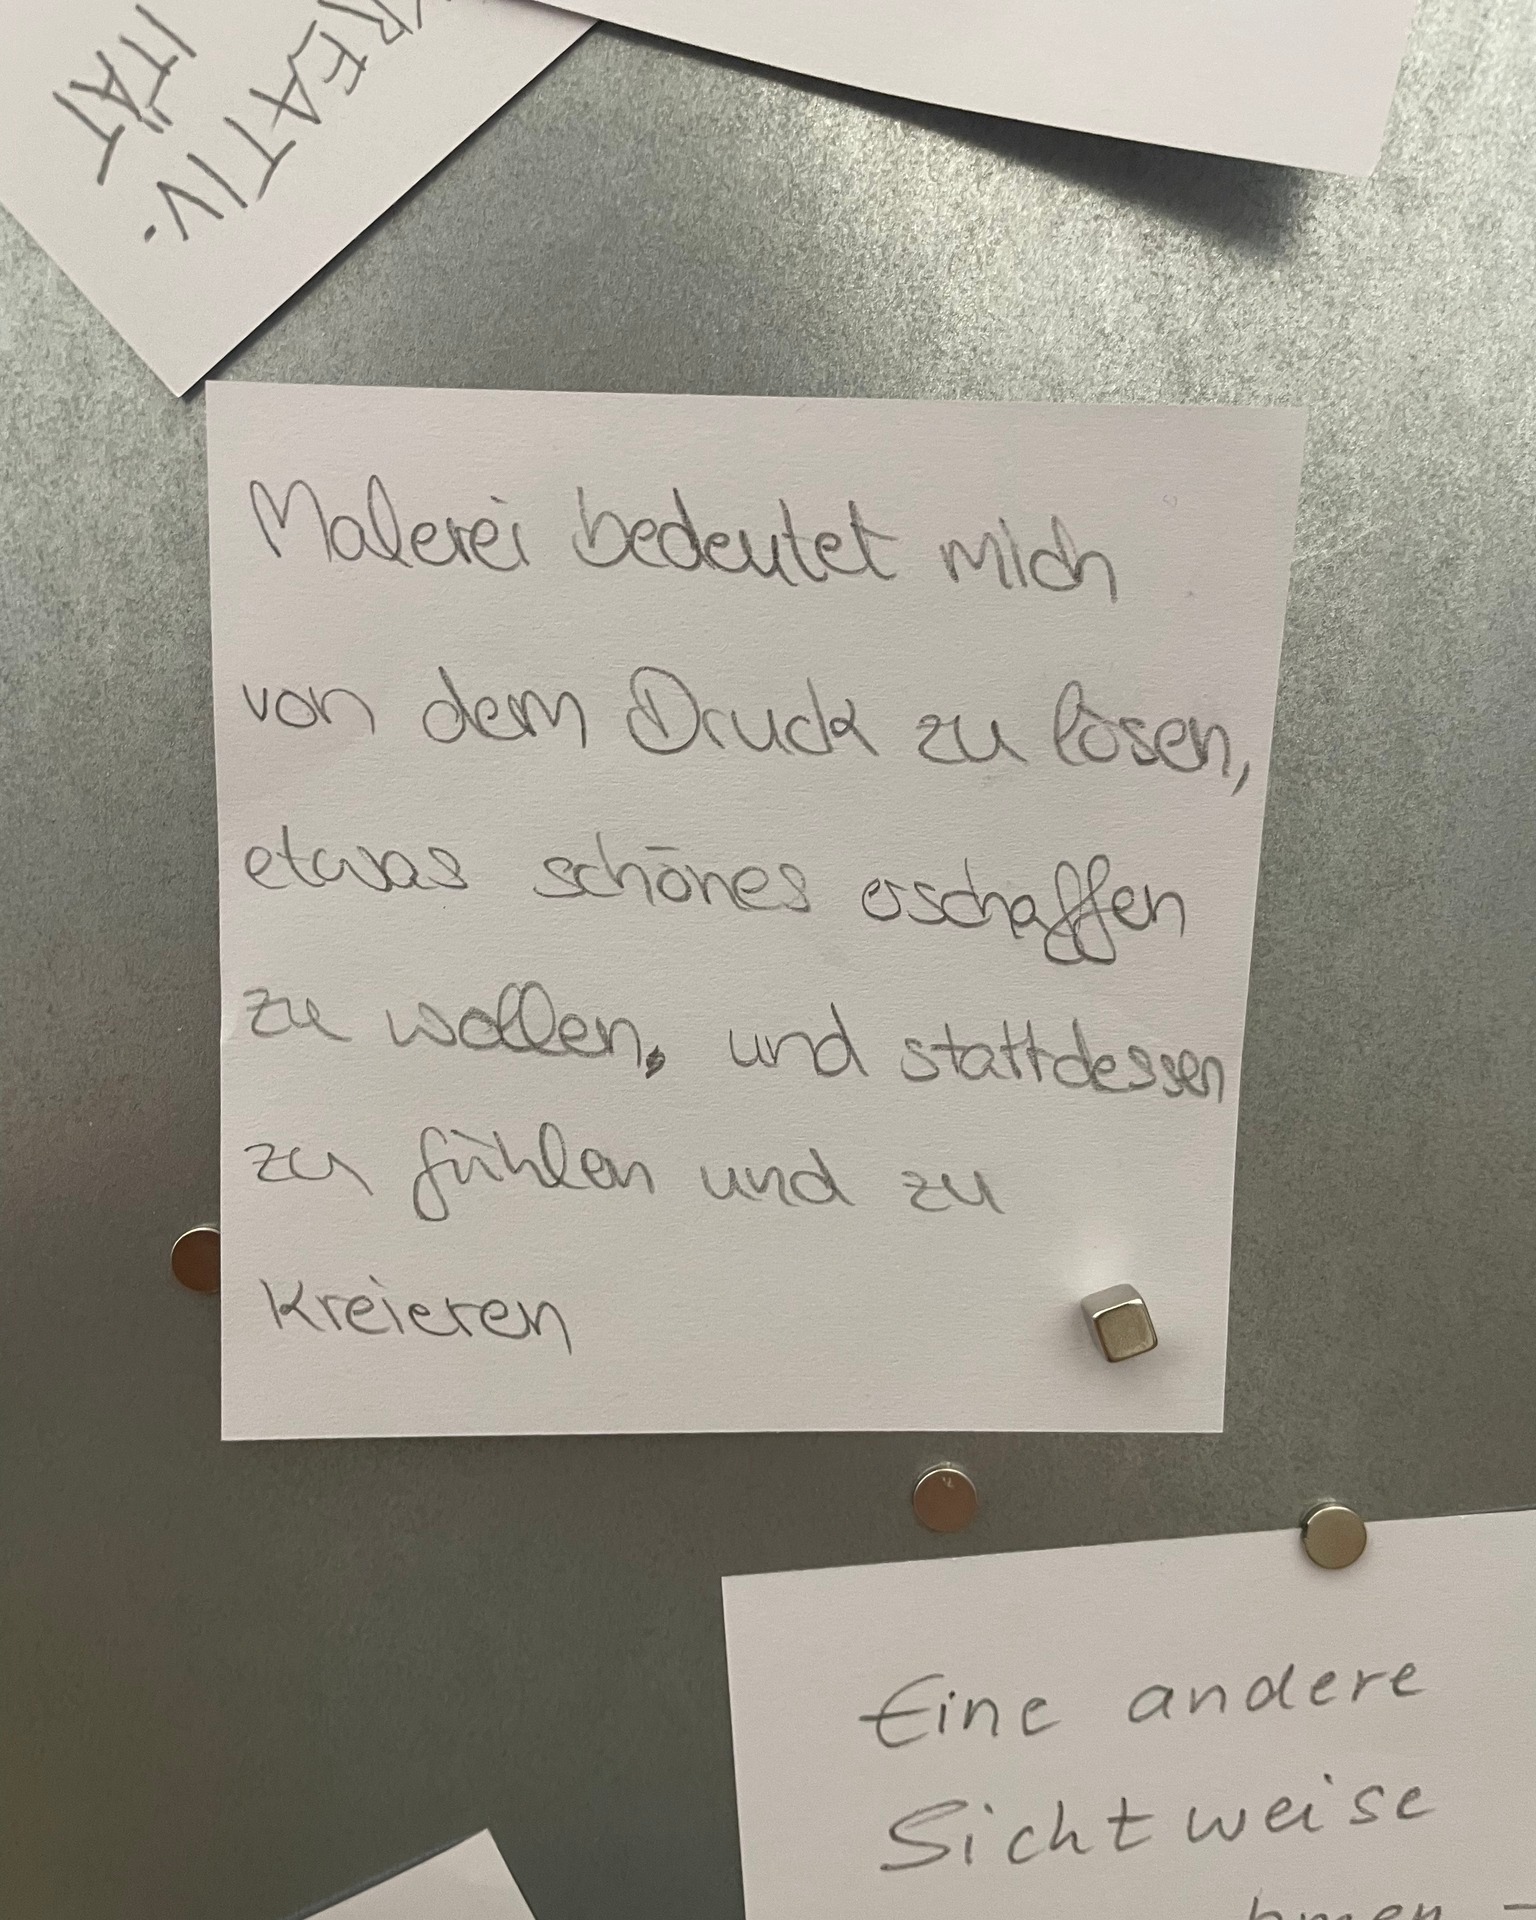 KREATIV-
ITÄT
Malerei bedeutet mich
von dem Druck zu lösen,
etwas schönes erschaffen
zu wollen, und stattdessen
zu fühlen und zu
kreieren
Eine andere
Sichtweise